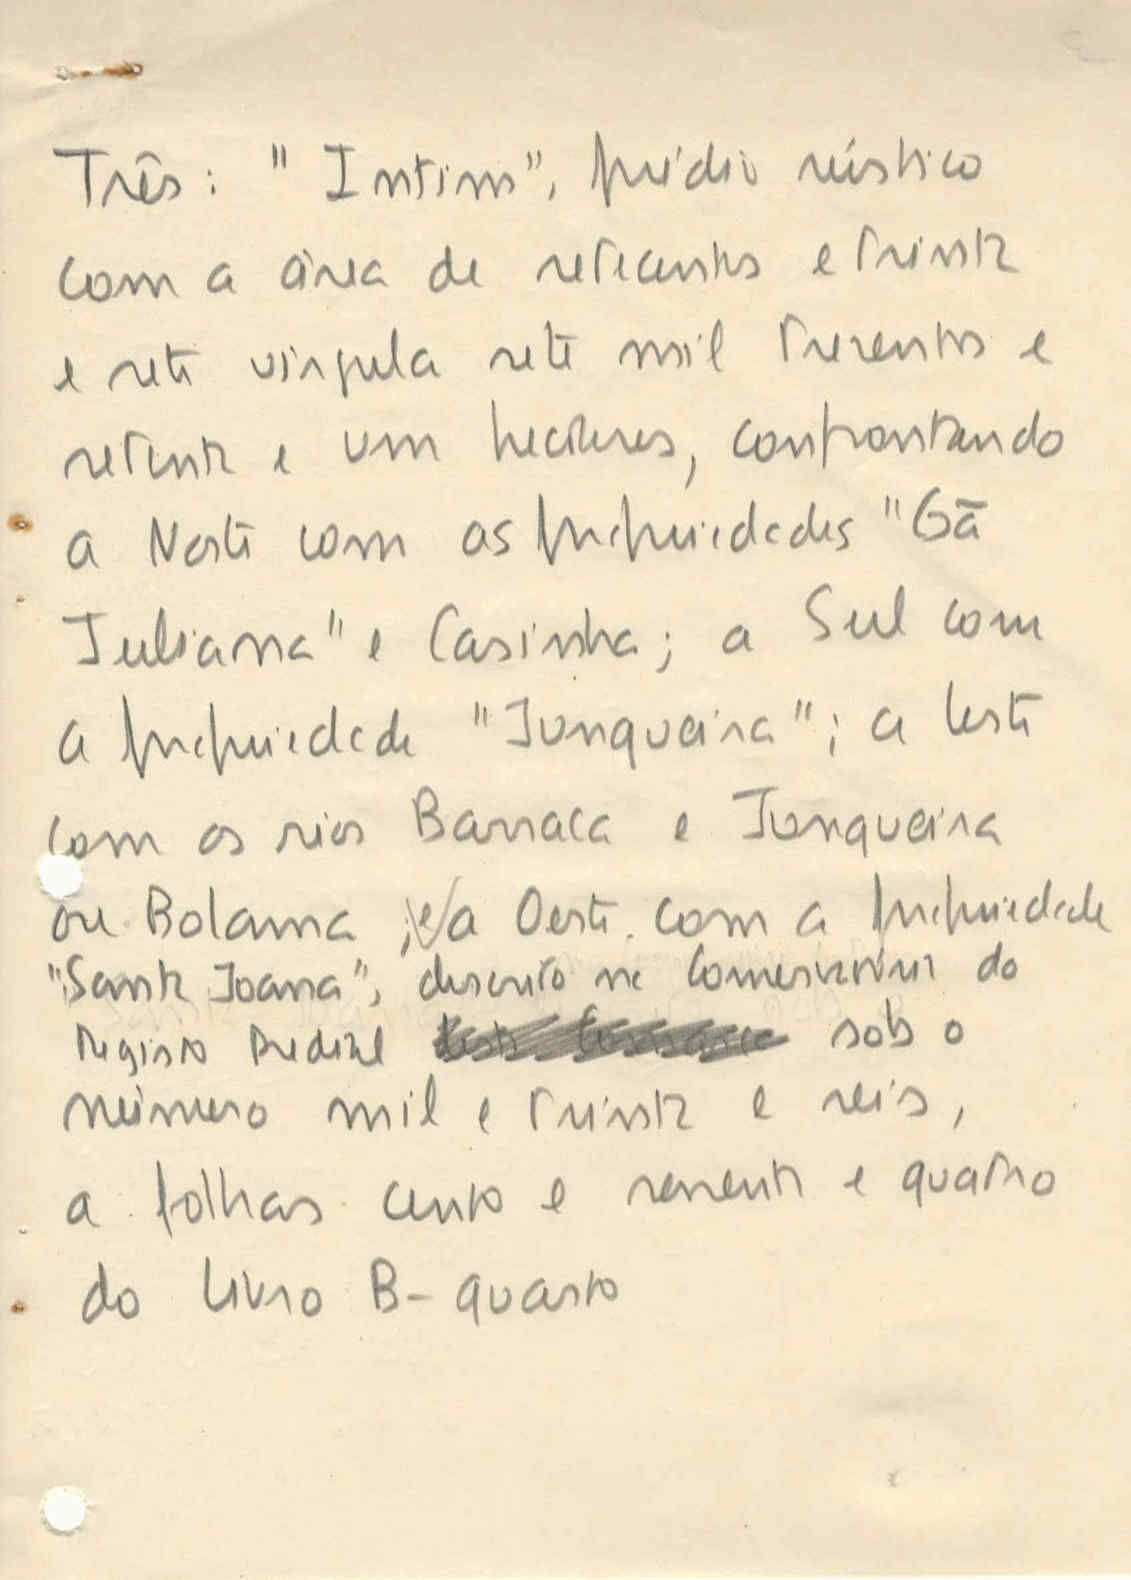 Três: "Intim", prédio rústico
com a área de setecentos e trinta
e sete vírgula sete mil trezentos e
setenta e um hectares, confrontando
a Norte com as propriedades "Gã
Juliana" e Casinha; a Sul com
a propriedade "Junqueira"; a leste
com os rios Barraca e Junqueira
ou Bolama ; e a Oeste com a propriedade
"Santa Joana", descrito na Conservatória do
Registo Predial sob o
número mil e trinta e seis,
a folhas cento e sessenta e quatro
do livro B-quarto